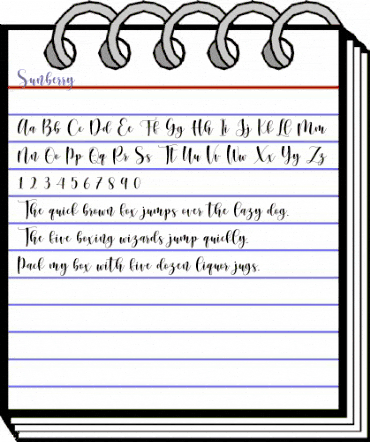 Sunberry
Aa Bb Cc Dd Ee Ff Gg Hh Ii Jj Kk Ll Mm
Nn Oo Pp Qq Rr Ss Tt Uu Vv Ww Xx Yy Zz
1 2 3 4 5 6 7 8 9 0
The quick brown fox jumps over the lazy dog.
The five boxing wizards jump quickly.
Pack my box with five dozen liquor jugs.